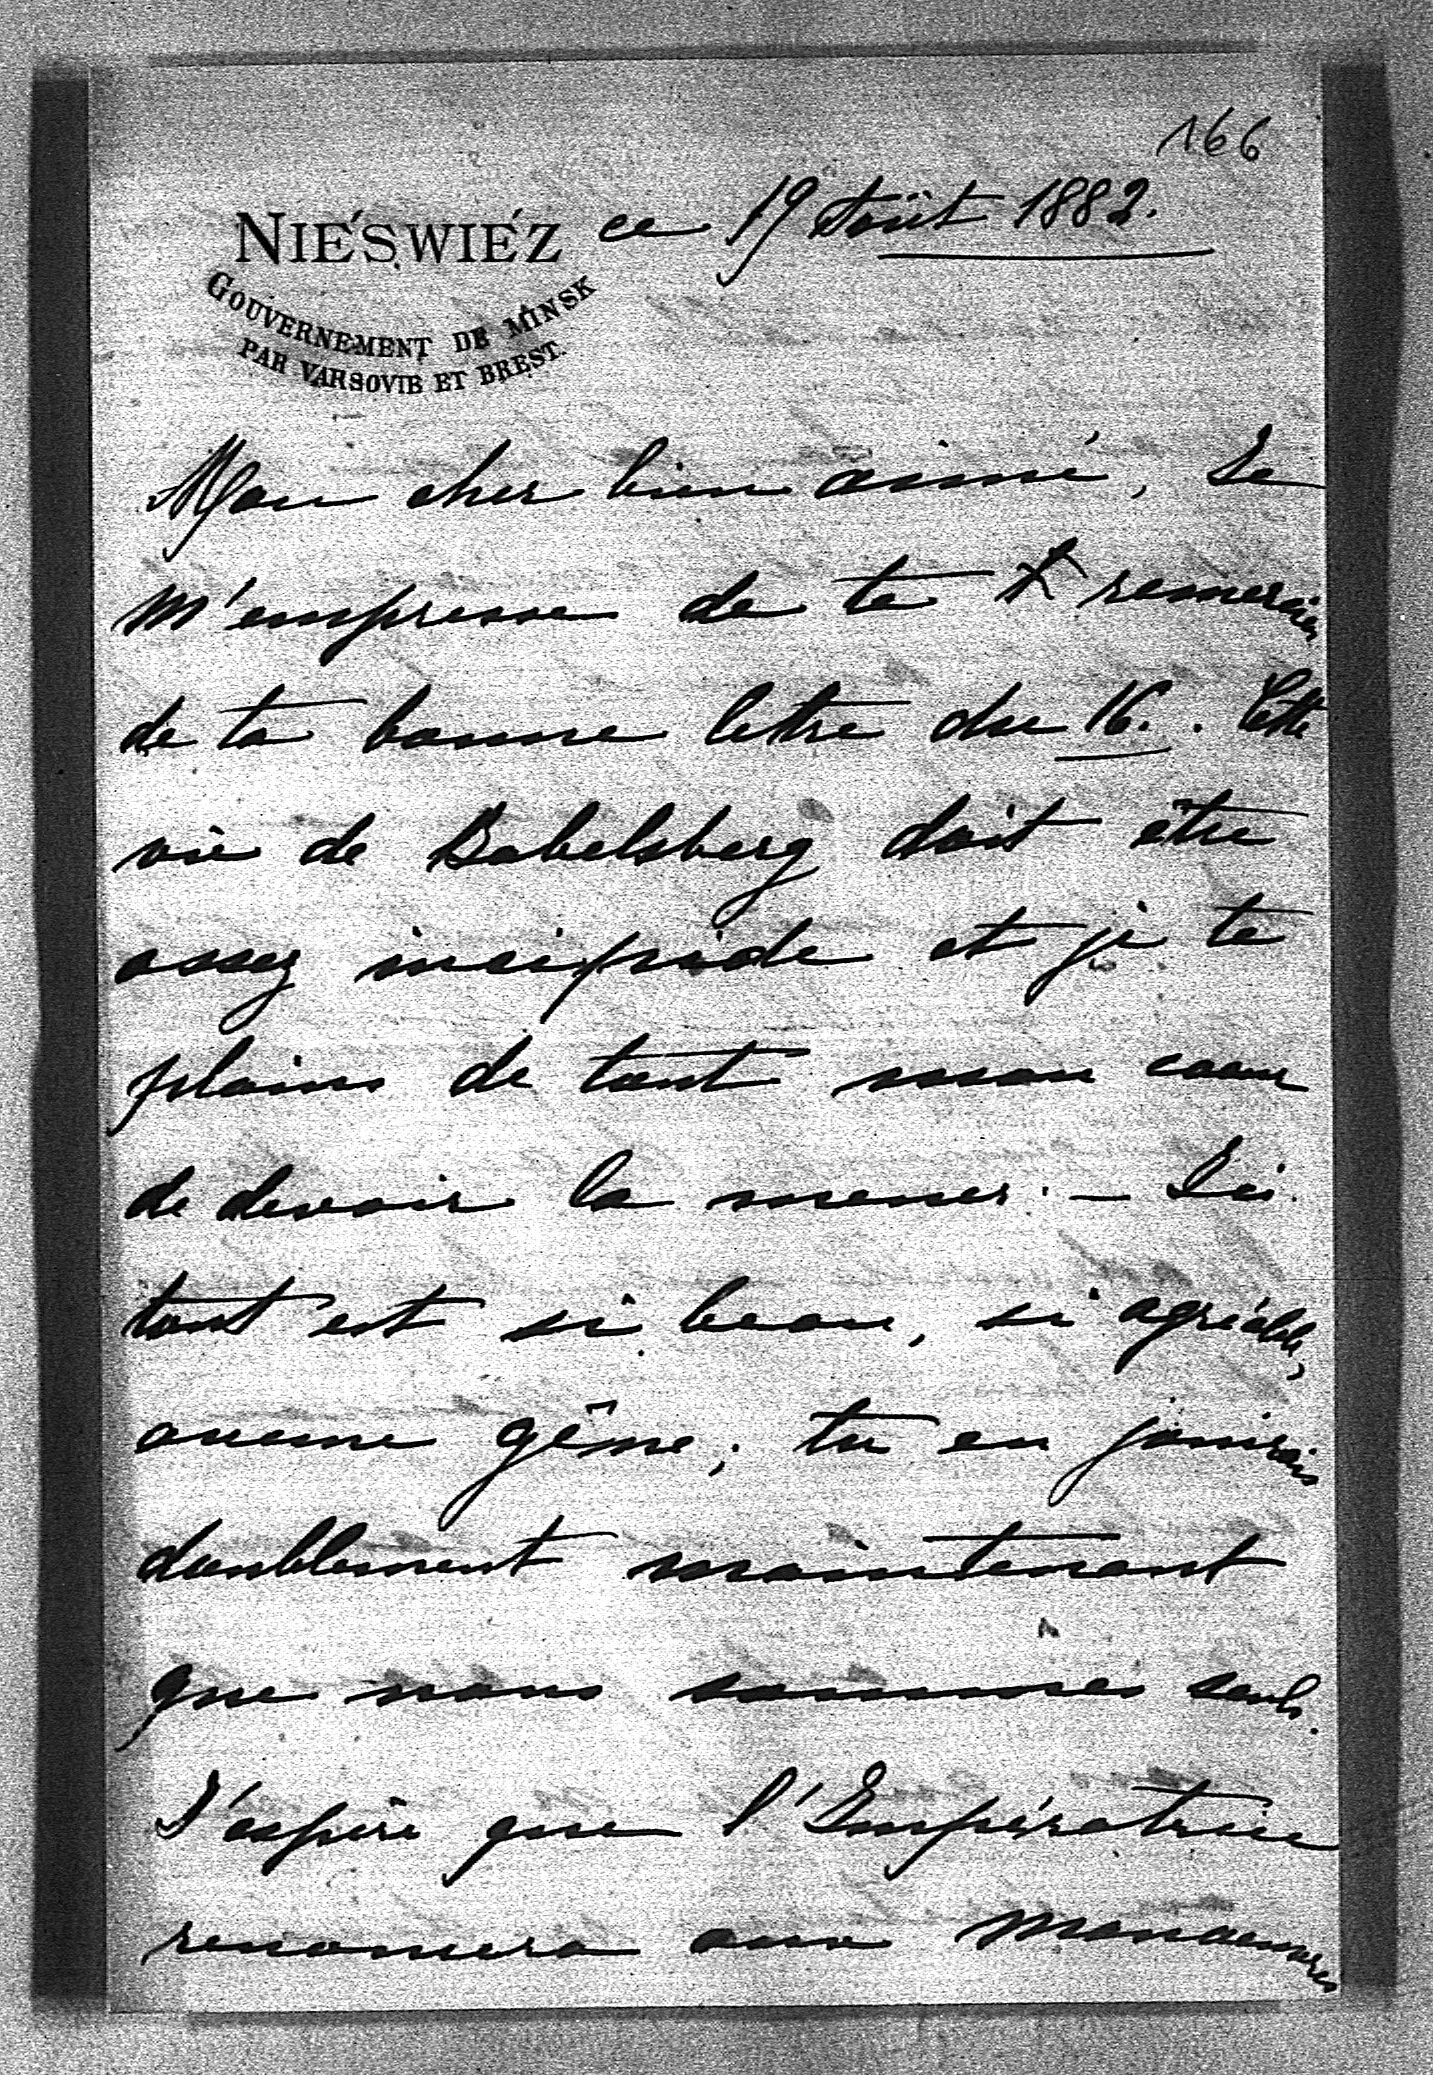 166
NIÉSWIÉZ ce 19 Août 1882.
GOUVERNEMENT DE MINSK
PAR VARSOVIE ET BREST.
Mon cher bien aimé, Je
m'empresse de te remercier
de ta bonne lettre du 16. Cette
vie de Babelsberg doit être
assez insipide et je te
plains de tout mon coeur
de devoir la mener. - Ici
tout est si beau, si agréable,
aucune gêne; tu en jouirais
doublement maintenant
que nous sommes seuls.
J'espère que l'Impératrice
renoncera aux manoeuvres